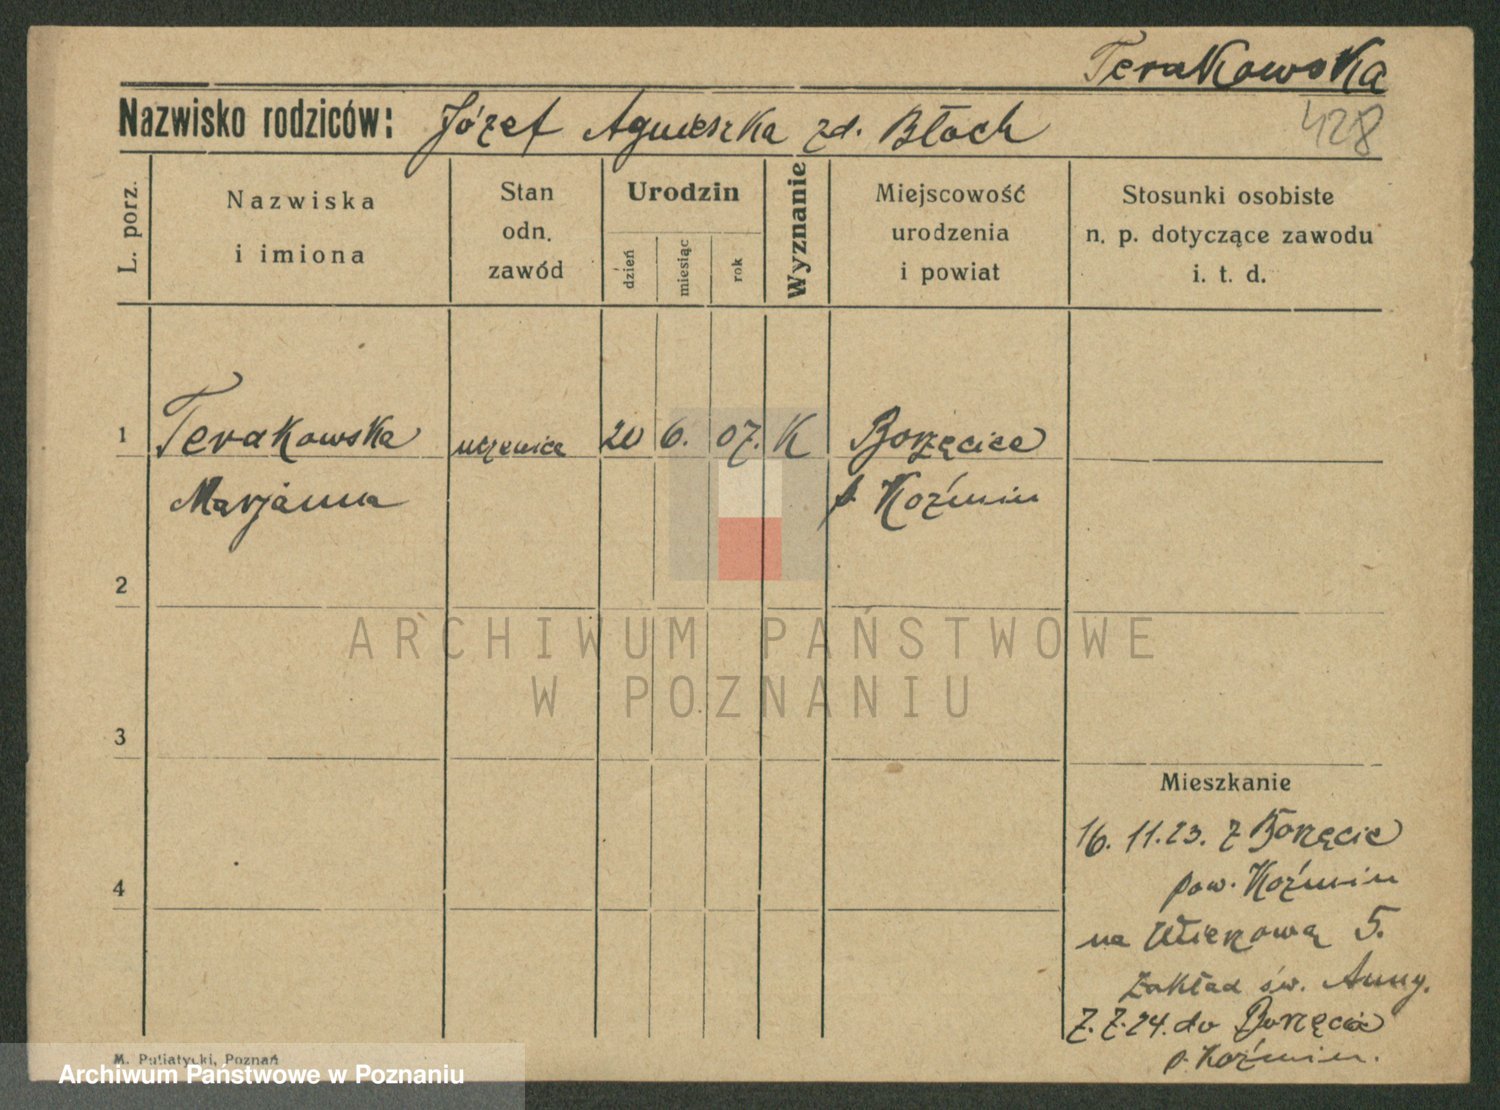 Terakowska
Nazwisko rodziców: Józef Agnieszka zd. Błoch
428
L. porz.
Nazwiska
i imiona
Stan
odn.
zawód
Urodzin
dzień
miesiąc
rok
Wyznanie
Miejscowość
urodzenia
i powiat
Stosunki osobiste
n. p. dotyczące zawodu
i. t. d.
1 Terakowska uczenica 20 6. 07. K Borzęcice
Marjanna p. Koźmin
2
ARCHIWUM PAŃSTWOWE
W POZNANIU
3
Mieszkanie
16. 11.23. z Borzęcic
pow. Koźmin
4
na 5.
Zakład św. Anny.
24. do Borzęcic
p. Koźmin.
M. Putiatycki, Poznań
Archiwum Państwowe w Poznaniu